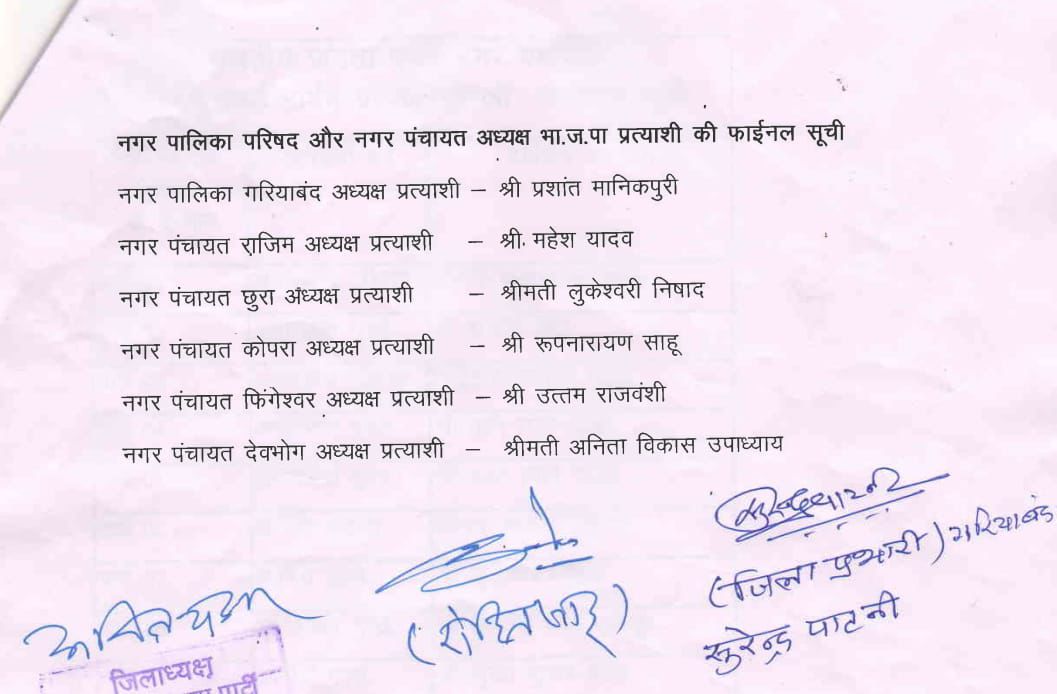 नगर पालिका परिषद और नगर पंचायत अध्यक्ष भा.ज.पा प्रत्याशी की फाईनल सूची
नगर पालिका गरियाबंद अध्यक्ष प्रत्याशी – श्री प्रशांत मानिकपुरी
नगर पंचायत राजिम अध्यक्ष प्रत्याशी – श्री महेश यादव
नगर पंचायत छुरा अध्यक्ष प्रत्याशी – श्रीमती लुकेश्वरी निषाद
नगर पंचायत कोपरा अध्यक्ष प्रत्याशी – श्री रूपनारायण साहू
नगर पंचायत फिंगेश्वर अध्यक्ष प्रत्याशी – श्री उत्तम राजवंशी
नगर पंचायत देवभोग अध्यक्ष प्रत्याशी – श्रीमती अनिता विकास उपाध्याय
(जिला प्रभारी) गरियाबंद
सुरेन्द्र पाटनी
जिलाध्यक्ष
पार्टी